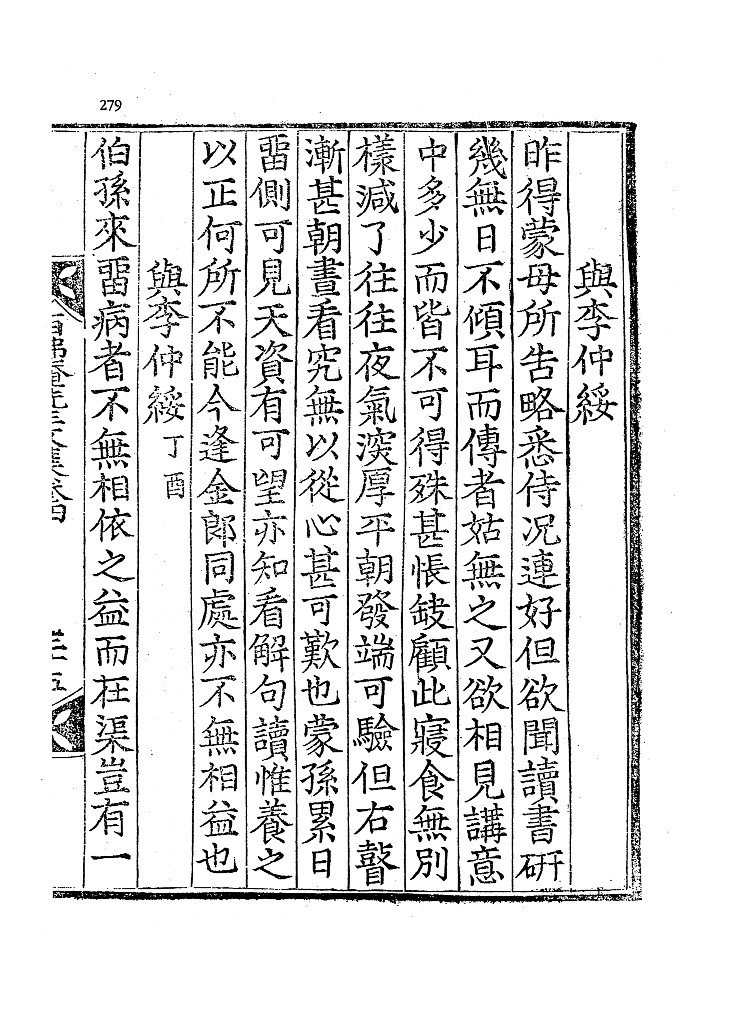 279
與李仲綏
昨得蒙母所告略悉侍况連好但欲聞讀書硏
幾無日不傾耳而傳者姑無之又欲相見講意
中多少而皆不可得殊甚悵缺顧此寢食無別
樣減了往往夜氣深厚平朝發端可驗但右聲
漸甚朝晝看究無以從心甚可歎也蒙孫累日
畱側可見天資有可望亦知看解句讀惟養之
以正何所不能今逢金郎同處亦不無相益也
與李仲綏 丁酉
伯孫來畱病者不無相依之益而在渠豈有一
先生文集卷四
三五